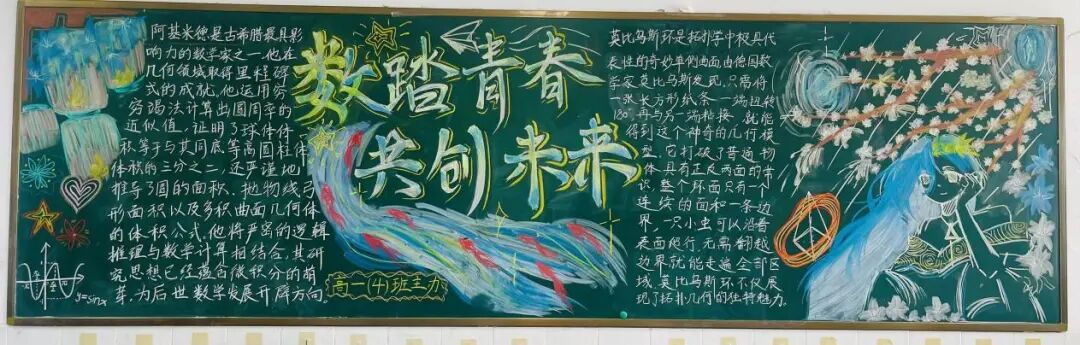 阿基米德是古希腊最具影
响力的数学家之一他在
几何领域取得里程碑
式的成就,他运用穷
穷竭法计算出圆周率的
近似值,证明了球体体
积等于与其同底等高圆柱体
体积的三分之二,还严谨地
推导了圆的面积、抛物线弓
形面积以及多积曲面几何体
的体积公式,他将严密的逻辑
推理与数学计算相结合,其研
究思想已经蕴含微积分的萌
芽,为后世数学发展开辟方向。
y=sinx
数踏青春
共创未来
高一(4)班主办
莫比乌斯环是拓扑学中极具代
表性的奇妙单侧曲面由德国数
学家莫比乌斯发现,只需将
一张长方形纸条一端扭转
180°,再与另一端粘接,就能
得到这个神奇的几何模
型,它打破了普通物
体具有正反两面的常
识,整个环面只有一个
连续的面和一条边
界,一只小虫可以沿着
表面爬行,无需翻越
边界就能走遍全部区
域,莫比乌斯环不仅展
现了拓扑几何的独特魅力。